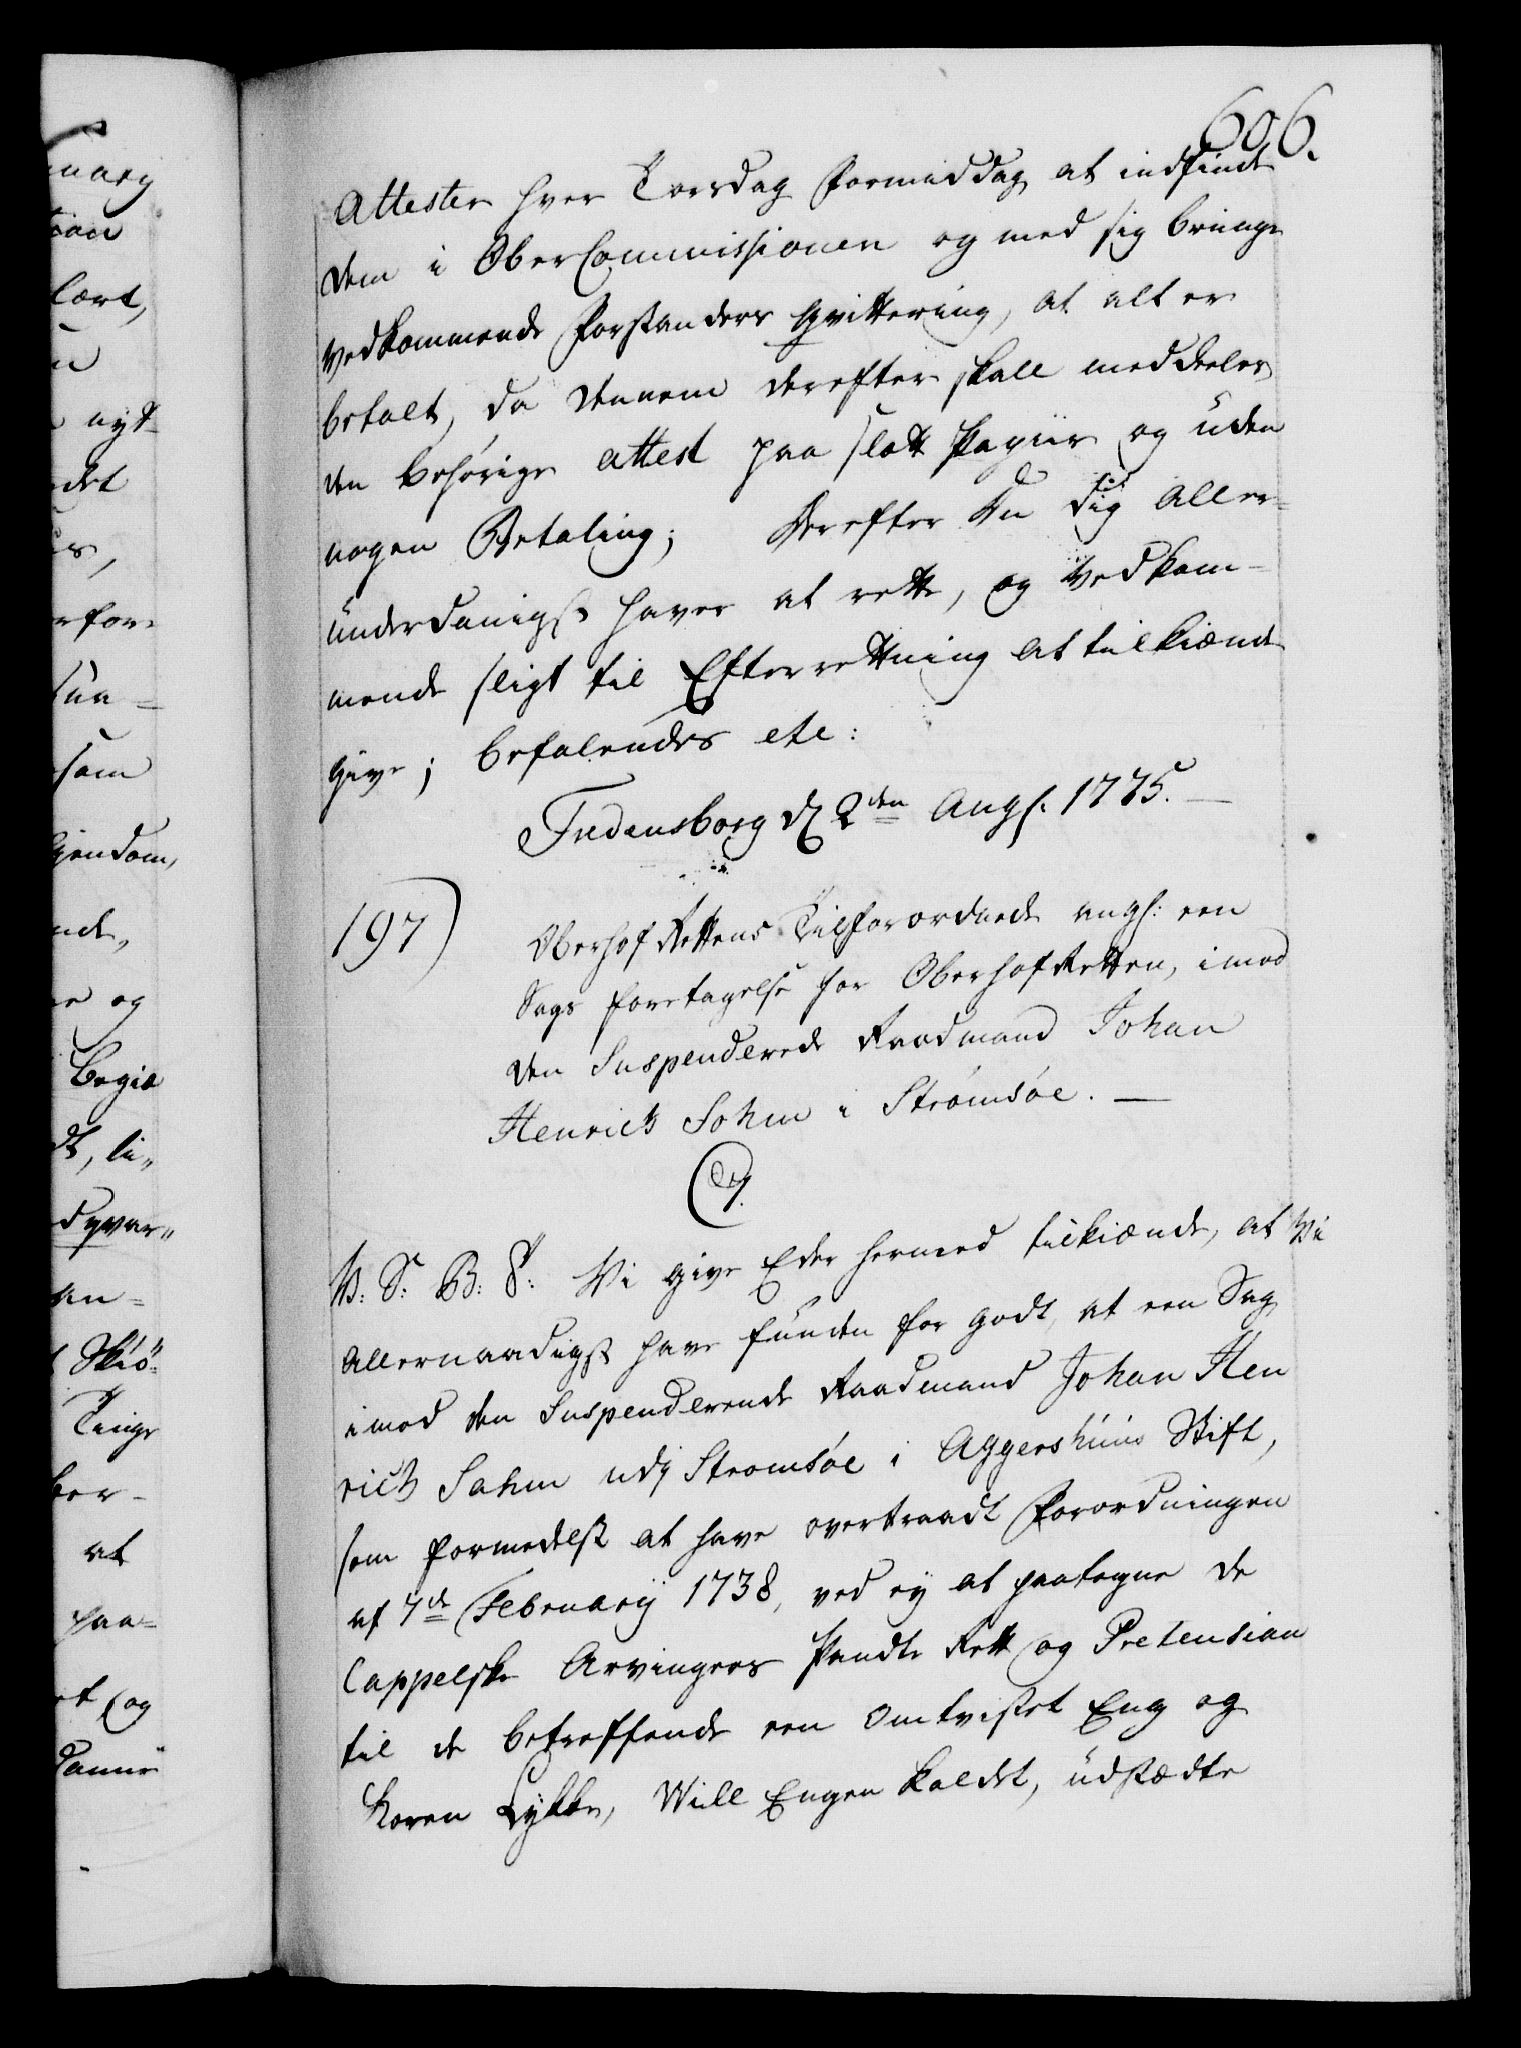 606.
Attester hver Torsdag Formiddag at indfinde
dem i OberCommissionen og med sig bringe
vedkommende Forstanders Qvittering, at alt er
betalt, da dennem derefter skall meddeeles
den behörige attest paa slæt Papiir og uden
nogen Betaling; Derefter Du dig aller-
underdanigst haver at rette, og vedkom-
mende sligt til Efterretning at tilkiende
give; befalendes etc:
Fredensborg d 2den Augs. 1775. —
197)
Oberhof Rettens Tilforordnede angl: een
Sags foretagelse for OberhofRetten, imod
den Suspenderede Raadmand Johan
Henrich Sohm i Strömsöe. —
V: S: B: G: Vi give Eder hermed tilkiende, at Vi
Allernaadigst have funden for godt, at een Sag
imod den Suspenderende Raadmand Johan Hen
rich Sahm udj Stromsöe i Aggershuus Stift,
som formedelst at have overtraadt Forordningen
af 7de Februarij 1738, ved ey at paategne de
Cappelske Arvingers Pandte Rett og Pretension
til de betreffende een omtvistet Eng og
Koren Lykke, Will Engen kaldet, udstædte
nary
lært,
nyt-
edet
som
Ejendom,
nde,
re og
Begiæ
dt, li„
an-
Skiö„
Tinge
ber-
at
paa-
et og